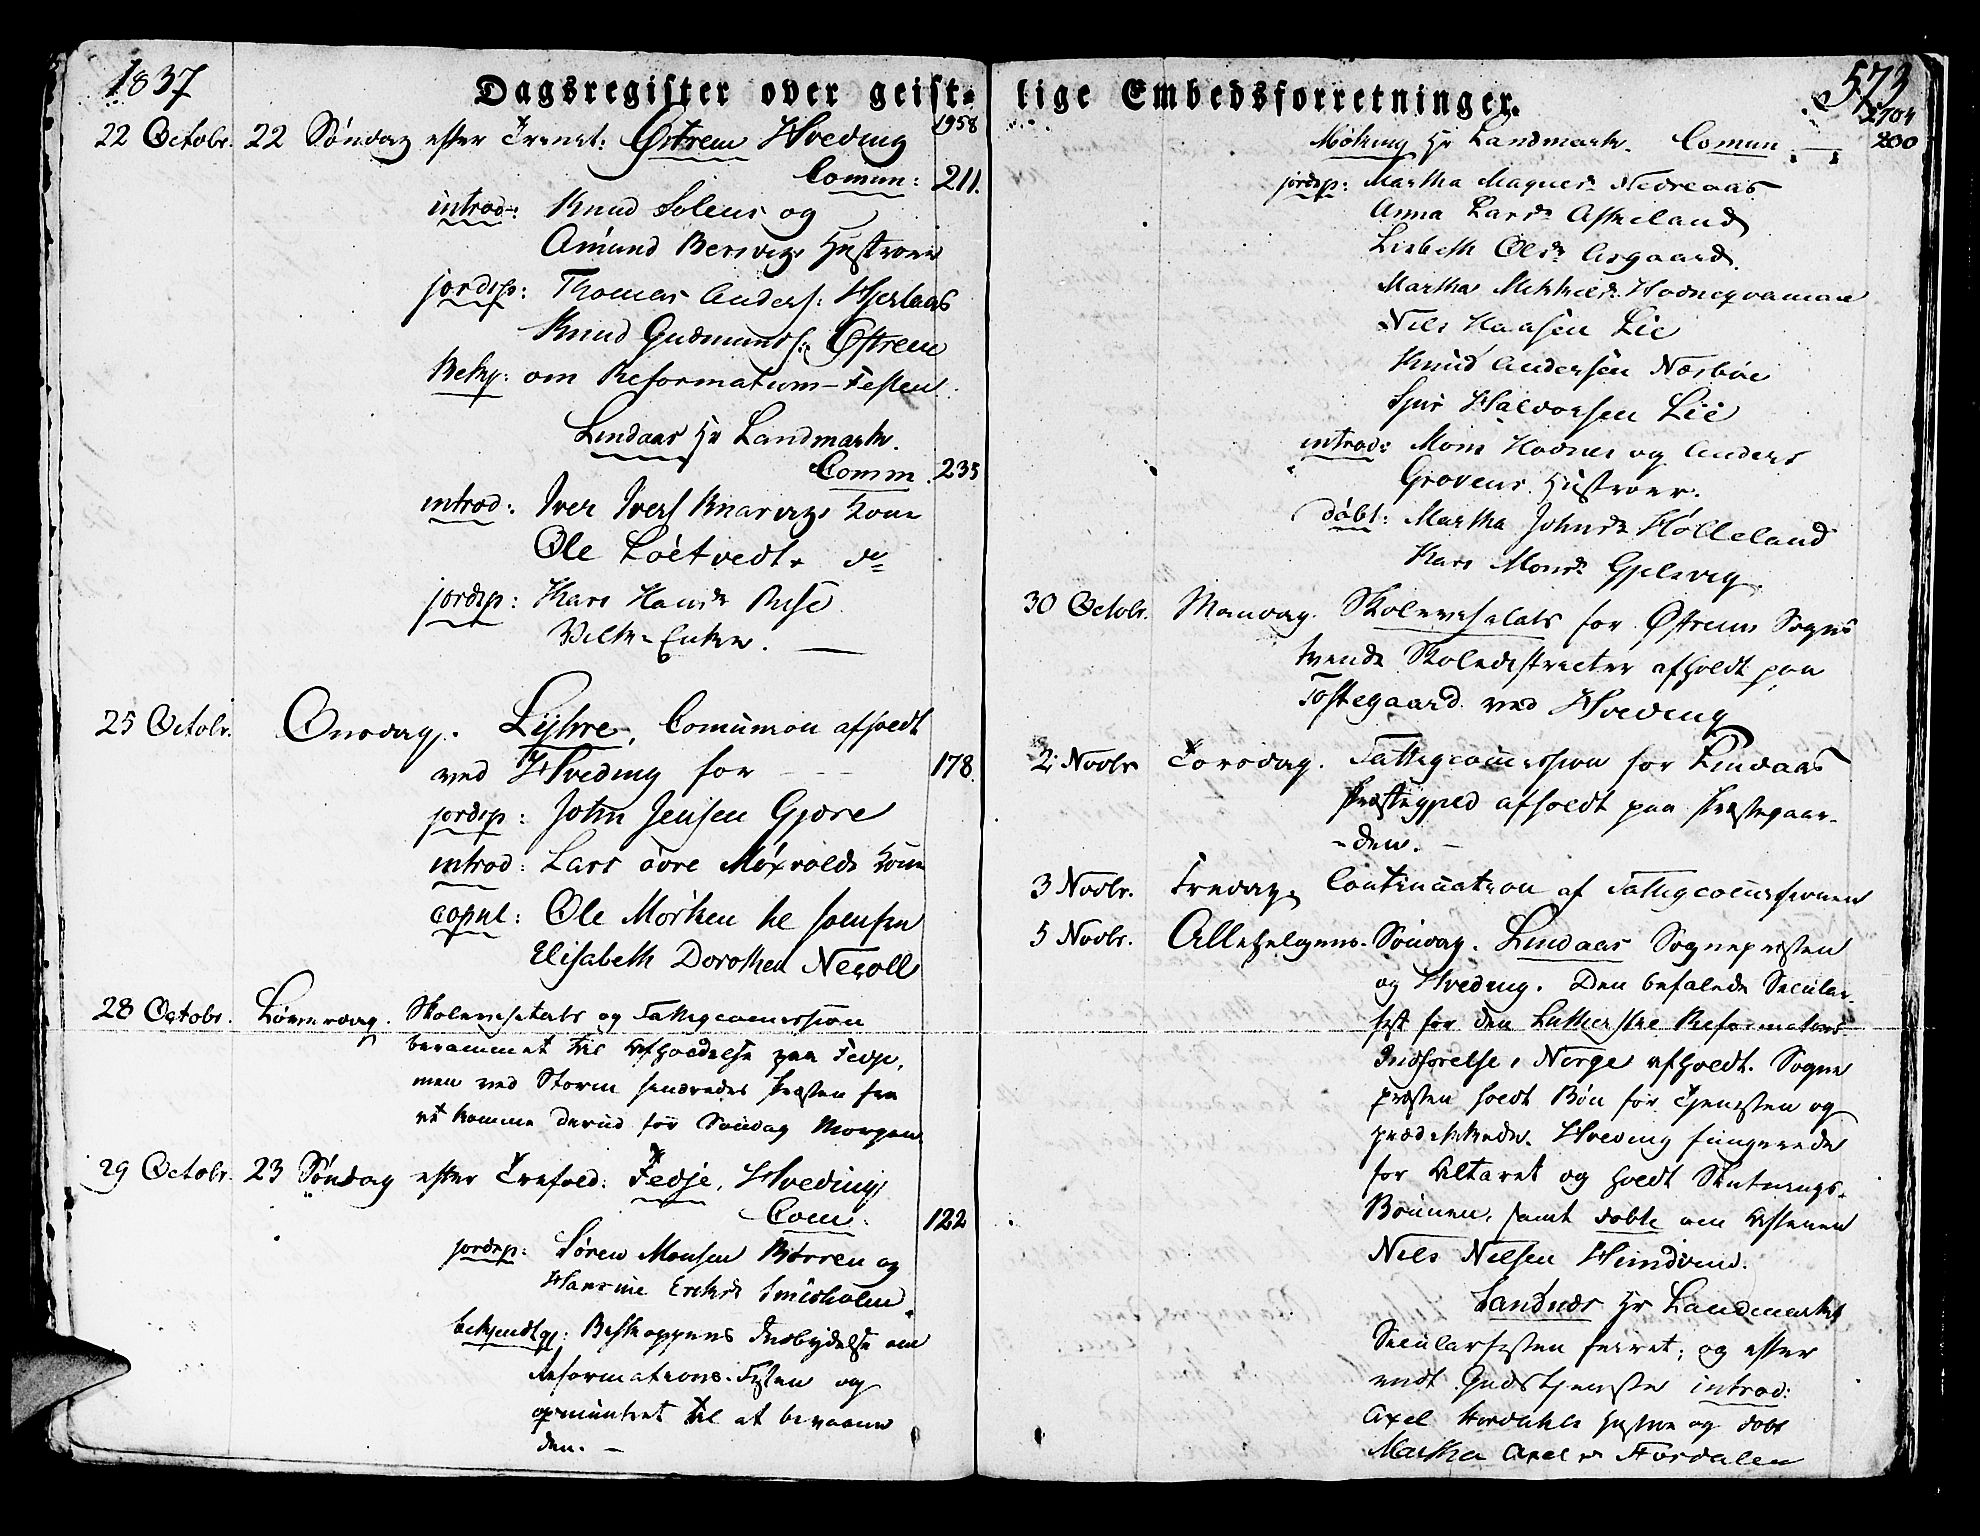 1837
Dagsregister over geist-
22 Octobr. 22 Søndag efter Trenit: Østrem Hveding 1958
Comun: 211.
introd: Knud Solens og
Amund Bersvigs Hustroer
jordsp: Thomas Anders: Hjertaas
Knud Gudmunds: Østrem
Bekj: om Reformations-Festen
Lindaas Hr Landmark.
Comm. 235
introd: Iver Ivers Knarvigs Kone
Ole Løtvedts do
jordsp: Kari Hansdr Rise
Enke.
25 Octobr. Onsdag. Lyhre, Comunion afholdt
ved Hveding for 178.
jordsp: John Jensen Gjøre
introd: Lars øvre Kone
copul: Ole Mørken
Elisabeth Dorothea
28 Octobr. Løverdag. Skolevisitats og Fattigcomission
berammet til Afholdelse paa Fedje,
men ved Storm hindredes Præsten fra
at komme derud før Søndag Morgen
29 Octobr. 23 Søndag efter Trefold: Fedje, Hveding
Com: 122
jordsp: Søren Monsen Børren og
Hansine Ericksd
bekjendtgj: Biskoppens Indbydelse om
Reformations-Festen og
opmuntret til at bivaane
den. —
lige Embedsforretninger.
573
2704
Møking Hr Landmark. Comun 200
jordsp: Martha Magnesdr Nedreaas
Anna Larsdr Askeland
Lisbeth Olsdr Asgaard.
Martha Mikkelsdr
Nils Hansen Lie
Knud Andersen Næsbøe
Halvorsen Lie
introd: Mons Hodnes og Anders
Grovens Hustroer.
døbt: Martha Johnsdr Hølleland
Kari Monsdr Gjelsvig
30 Octobr. Mandag. Skolevisitats for Østrems Sogns
tvende Skoledistricter afholdt paa
Tostegaard ved Hveding
2 Novbr Torsdag. Fattigcomission for Lindaas
Præstegjeld afholdt paa Præstegaar-
-den. —
3 Novbr. Fredag. Continuation af Fattigcomissionen
5 Novbr. Allehelgens-Søndag. Lindaas Sognepræsten
og Hveding. Den befalede Secular-
fest for den Lutherske Reformations
Indførelse i Norge afholdt. Sogne
præsten holdt Bøn før Tjenesten og
prædikkede. Hveding fungerede
for Altaret og holdt Slutnings-
Bønnen, samt døbte om Aftenen
Nils Nilsen
Sandnæs Hr Landmark
Secularfesten feiret; og efter
endt Gudstjeneste introd:
Axel Fordahls Hustroe og døbt
Martha Axelsdr Fordalen